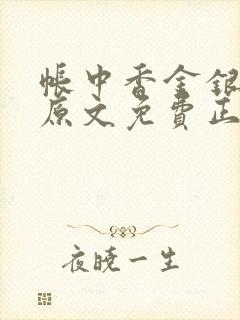 帳中香金銀
原文免費正
夜曉一生